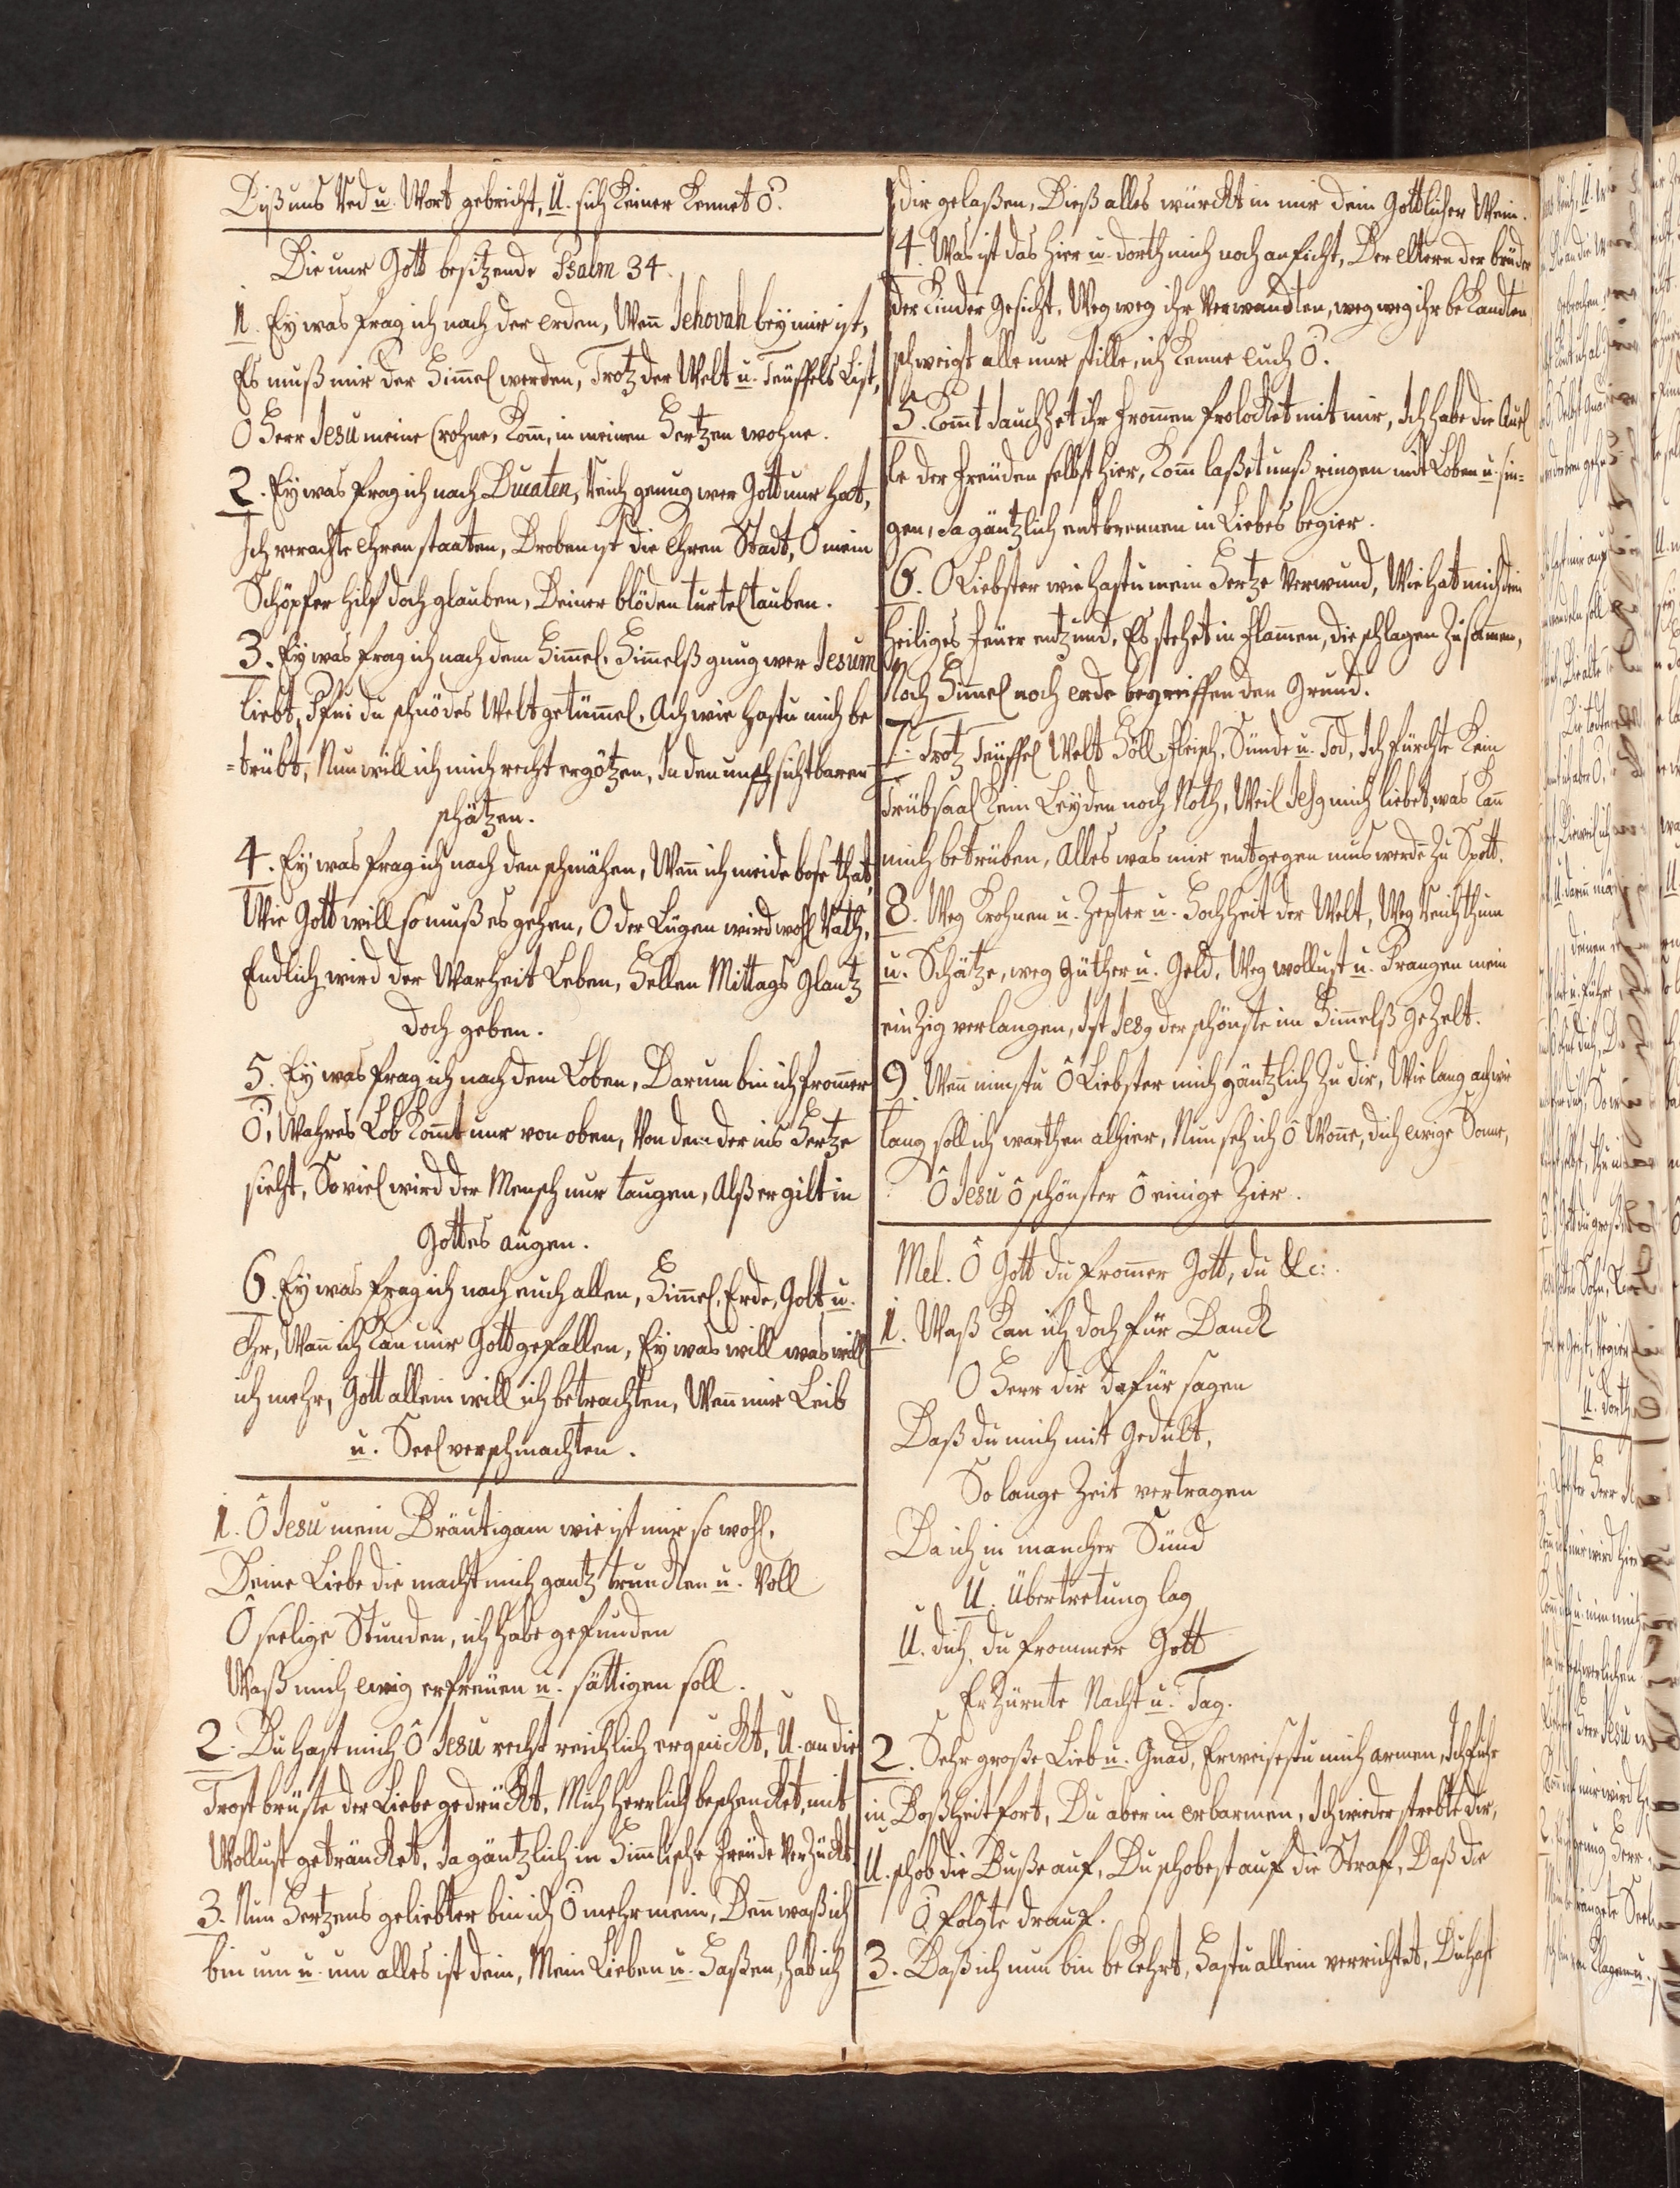 Biß uns Red u. Wort gebricht, U. sich keiner kennet Ö.
Die nur Gott besitzende Psalm 34.
1. Ey was frag ich nach der erden, Wen̄ Jehovah bey mir ist,
Es muß mir der Him̄el werden, Trotz der Welt u. Teüffels List,
O Herr Jesu meine Crohne, Kom̄, in meinen Hertzen wohne.
2. Ey was frag ich nach Ducaten, Reich genug wer Gott nur hat,
Ich verachte ehren staaten, Droben ist die ehren Stadt, O mein
Schöpfer hilf doch glauben, Deiner blöden turtel tauben.
3. Ey was frag ich nach dem Him̄el, Him̄elß gnug wer Jesum
liebt, Pfui du schnödes Welt getüm̄el, Ach wie hastu mich be
=trübt, Nun will ich mich recht ergötzen, In den unsichtbaren
schätzen.
4. Ey was frag ich nach den schmähen, Wen̄ ich meide böse that,
Wie Gott will so muß es gehen, O der Lügen wird wohl Rath,
Endlich wird der Warheit Leben, Hellen Mittags Glantz
doch geben.
5. Ey was frag ich nach dem Loben, Darum bin ich from̄er
Ö, Wahres Lob kom̄t nur von oben, Von dem der ins Hertze
sieht, So viel wird der Mensch nur taugen, Alß er gilt in
Gottes augen.
6. Ey was frag ich nach euch allen, Him̄el, Erde, Golt u.
Ehr, Wan̄ ich kan nur Gott gefallen, Ey was will was will
ich mehr, Gott allein will ich betrachten, Wen̄ mir Leib
u. Seel verschmachten.
1. Ô Jesu mein Bräutigam wie ist mir so wohl,
Deine Liebe die macht mich gantz trunken u. Voll
Ô seelige Stunden, ich habe gefunden
Waß mich ewig erfreüen u. sättigen soll.
2. Du hast mich Ô Jesu recht reichlich erquickt, U. an die
Trost brüste der Liebe gedrückt, Mich herrlich beschencket, mit
Wollust geträncket, Ja gäntzlich in Him̄lische freüde Verzückt.
3. Nun Hertzens geliebter bin ich Ö mehr mein, Den̄ waß ich
bin um u. um alles ist dein, Mein Lieben u. Haßen, hab ich
dir gelaßen, Dieß alles würckt in mir dein Göttlicher Wein.
4. Was ist das hier u. dorth mich noch anficht, Der eltern der brüder
der Kinder Gesicht, Weg weg ihr Verwandten, weg weg ihr bekandten,
schweigt alle nur stille, ich kenne euch Ö.
5. Kom̄t Jauchzet ihr from̄en frolocket mit mir, Ich habe die Quel
le der freüden selbst hier, Kom̄ laßet unß ringen mit Loben u. sin=
gen, Ja gäntzlich entbrennen in Liebes begier.
6. O Liebster wie hastu mein Hertze Verwund, Wie hat mich dein
heiliges feüer entzünd, Es stehet in flam̄en, die schlagen zusam̄en,
Noch Him̄el noch erde begreiffen den Grund.
7. Trotz Teüffel Welt Höll, fleisch, Sünde u. Tod, Ich fürchte kein
trübsaal kein Leyden noch Noth, Weil Jesq mich liebet, was kan̄
mich betrüben, Alles was mir entgegen mus werde zu Spott.
8. Weg Krohnen u. Zepter u. Hochheit der Welt, Weg Reichthum
u. Schätze, weg Güther u. Geld, Weg wollust u. Prangen mein
einzig verlangen, Ist Jesq der schönste im Him̄elß Gezelt.
9. Wen̄ nimstu Ô Liebster mich gäntzlich zu dir, Wie lang ach wie
lang soll ich warthen alhier, Nun seh ich Ô Won̄e, dich ewige Sonne,
Ô Jesu Ô schönster Ô einige Zier.
Mel. Ô Gott du from̄er Gott, du &c:
1. Waß kan ich doch für Danck
O Herr dir dafür sagen
Daß du mich mit Gedult,
So lange Zeit vertragen
Da ich in mancher Sünd
U. Übertretung lag
U. dich, du frommer Gott
Erzürnte Nacht u. Tag.
2. Sehr große Lieb u. Gnad, Erweisestu mich armen, Ich fuhr
in Boßheit fort, Du aber in erbarmen, Ich wieder strebte dir,
U. schob die Buße auf, Du schobest auf die Straf, Daß die
Ö folgte drauf.
3. Daß ich nun bin bekehrt, Hastu allein verrichtet, Du hast